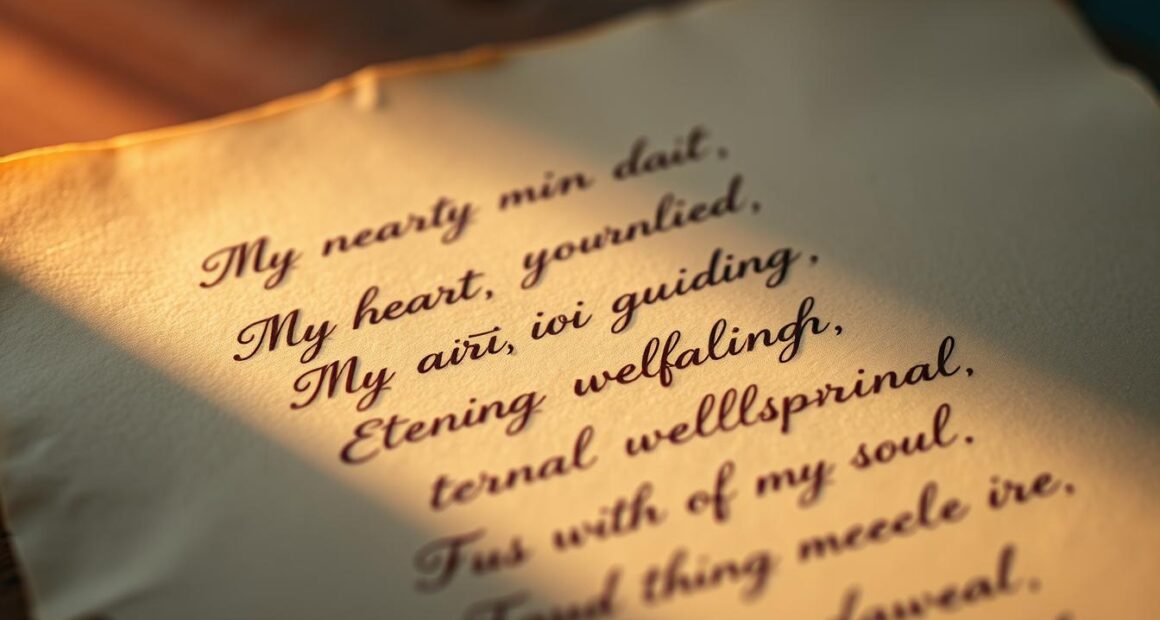 My nearty min dait,
My heart, yournlied,
My airī, ioi guiding,
Etening welfalingh,
ternal welllsprinal,
Fus with of my soul.
thing meecele ire,